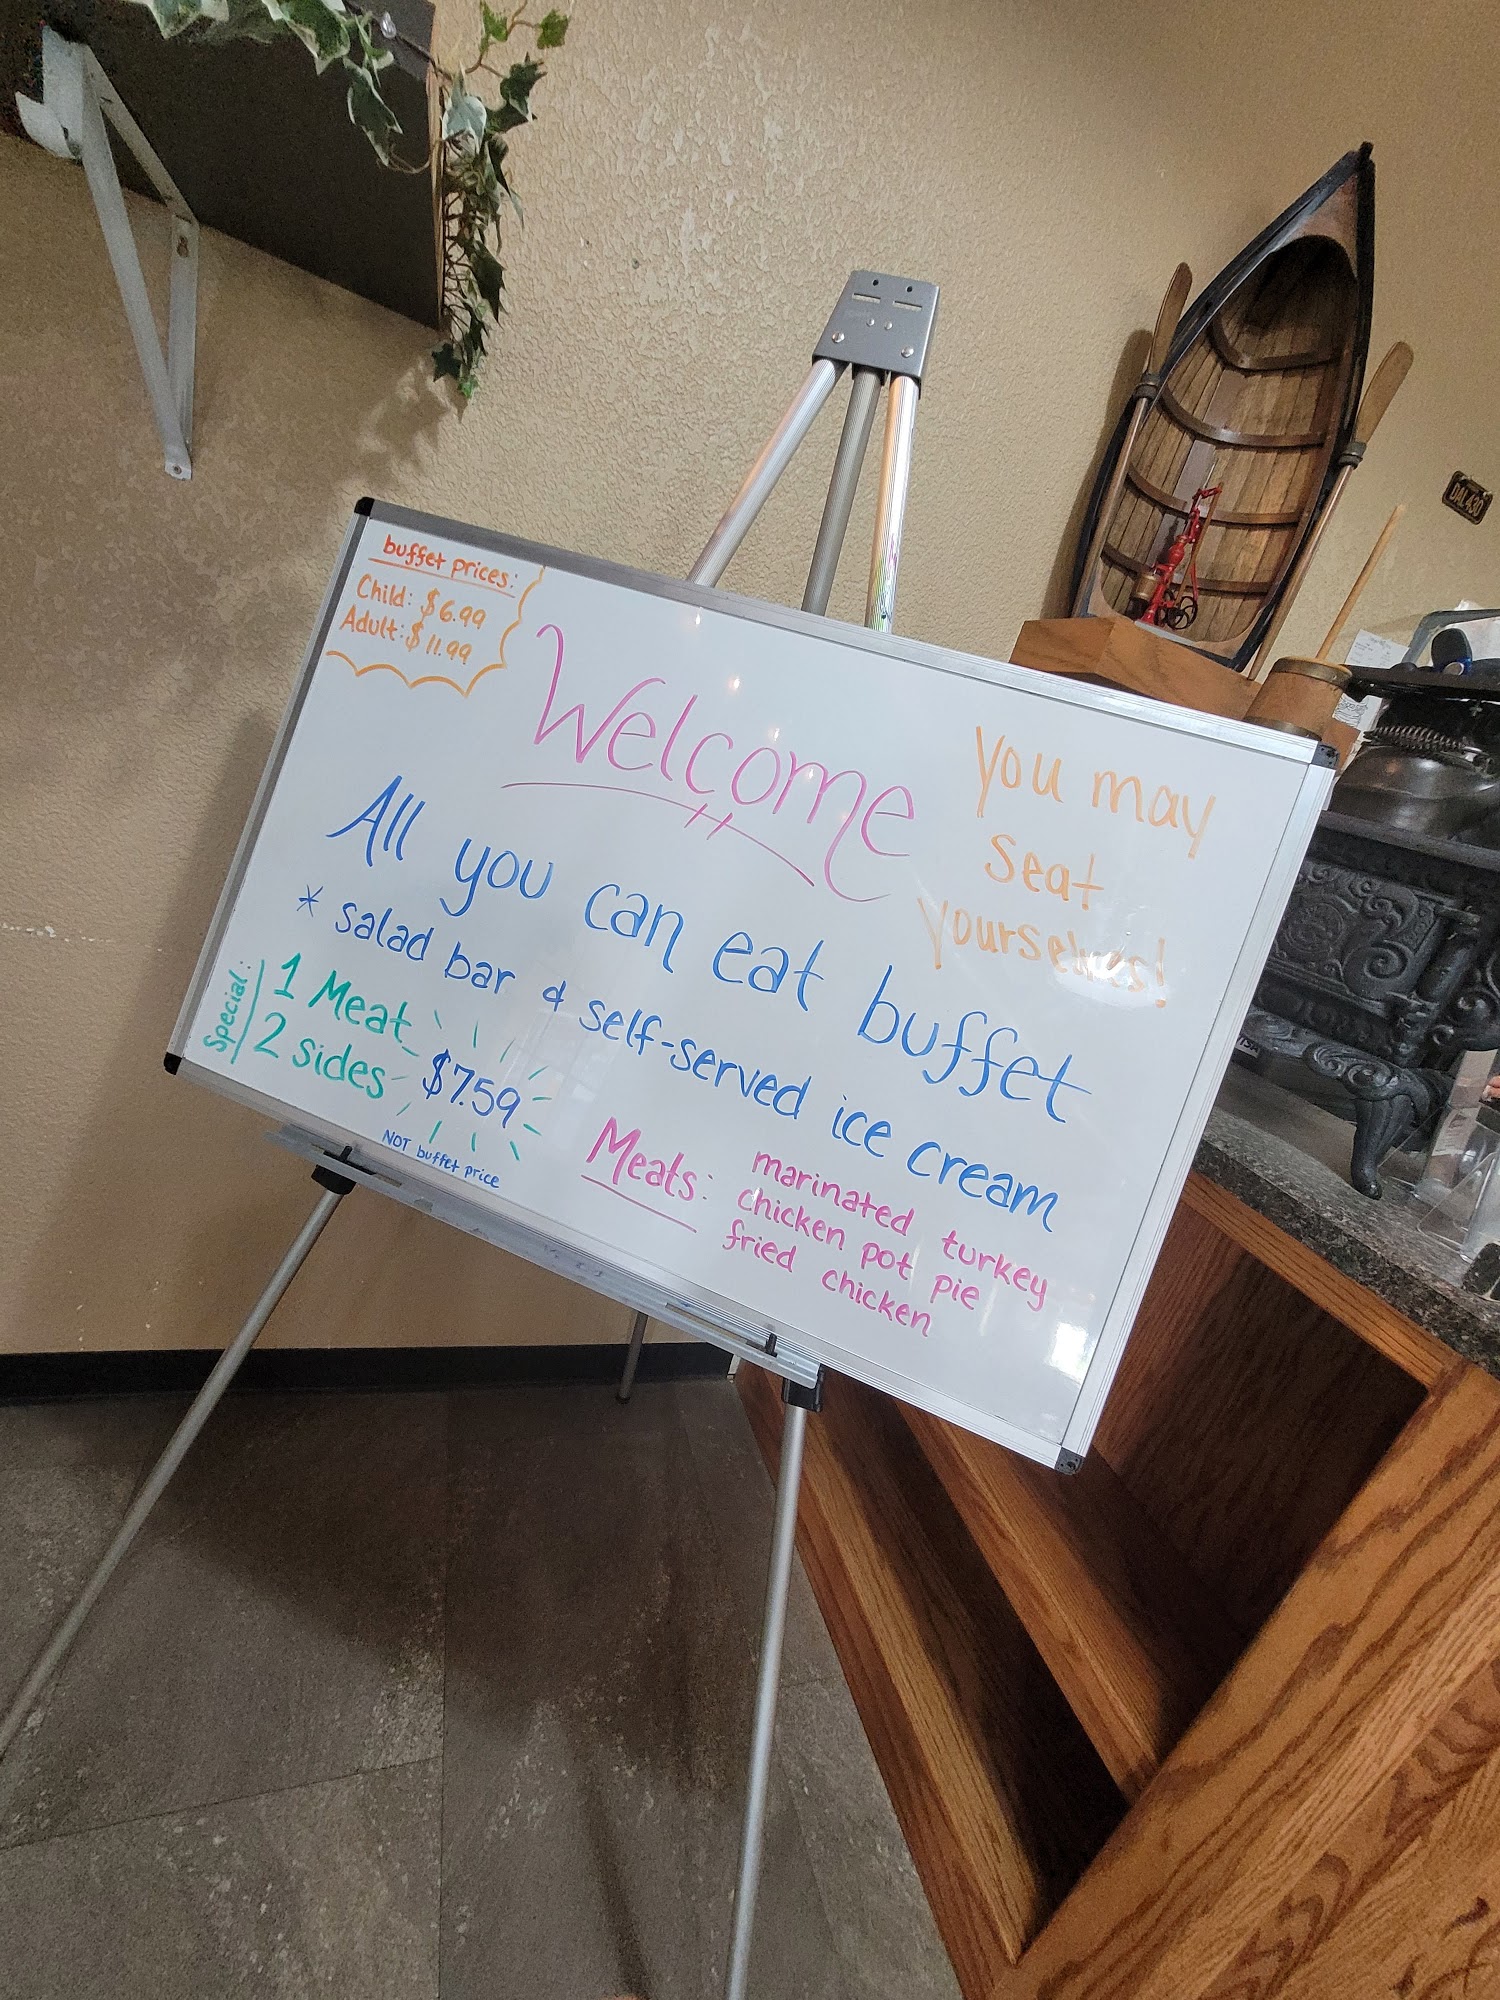 buffet prices:
Child: $6.99
Adult: $11.99
Welcome
You may
seat
yourselves!
All you can eat buffet
* salad bar & self-served ice cream
Special:
1 Meat
2 sides
$7.59
NOT buffet price
Meats:
marinated turkey
chicken pot pie
fried chicken
DAL430